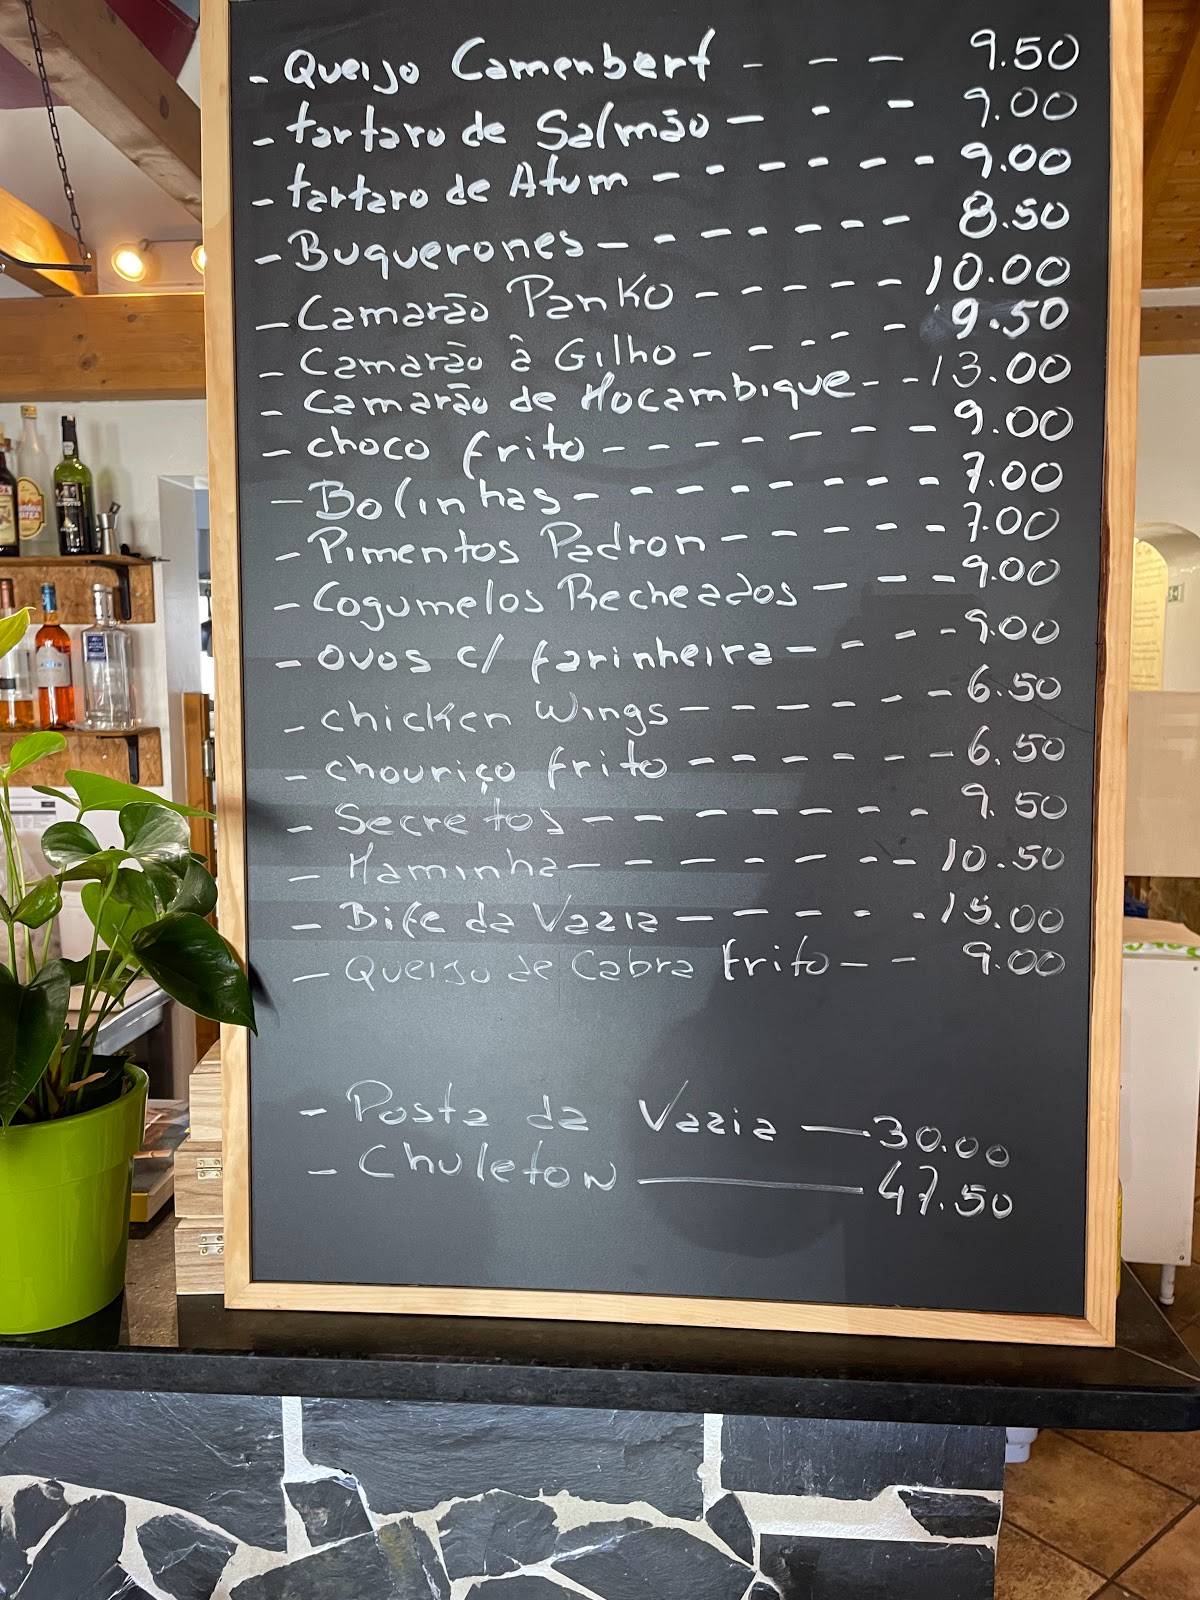 - Queijo Camenbert - - - 9.50
- tartaro de Salmão - - - 9.00
- tartaro de Atum - - - - - - 9.00
- Buquerones - - - - - - - 8.50
- Camarão Panko - - - - - 10.00
- Camarão à Gilho - - - - - 9.50
- Camarão de Mocambique - - 13.00
- choco frito - - - - - - - - 9.00
- Bolinhas - - - - - - - - - 7.00
- Pimentos Padron - - - - - - 7.00
- Cogumelos Recheados - - - - 9.00
- ovos c/ farinheira - - - - - 9.00
- chicken Wings - - - - - - - 6.50
- chouriço frito - - - - - - - 6.50
- Secretos - - - - - - - - - 9.50
- Maminha - - - - - - - - 10.50
- Bife da Vazia - - - - - - 15.00
- Queijo de Cabra Frito - - 9.00
- Posta da Vazia — 30.00
- Chuleton — 47.50